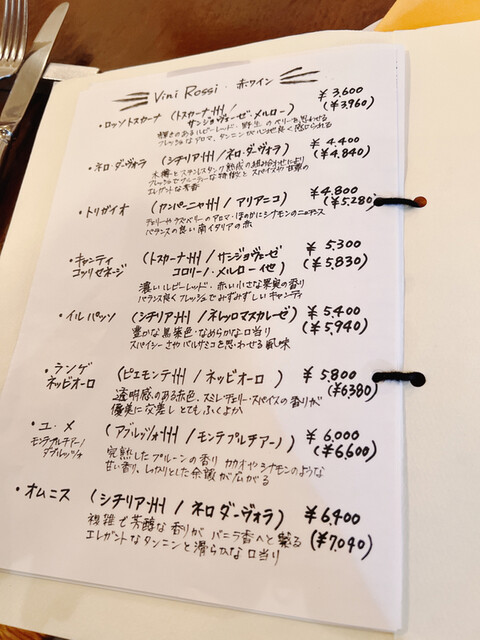 Vini Rossi. 赤ワイン
・ロッソトスカーナ (トスカーナ州 / ¥3,600
サンジョヴェーゼ・メルロー) (¥3,960)
輝きのあるルビーレッド・野生のベリーを思わせる
フレッシュなアロマ、タンニンが心地良く感じられる
・ネロ・ダーヴォラ (シチリア州 / ネロ・ダーヴォラ) ¥4,400
(¥4,840)
木樽とステンレスタンク熟成の組み合わせにより
フレッシュでフルーティーな特徴と スパイスや甘草の
エレガントな芳香
・トリガイオ (カンパーニャ州 / アリアニコ) ¥4,800
(¥5,280)
チェリーやラズベリーのアロマ・ほのかにシナモンのニュアンス
バランスの良い南イタリアの赤
・キャンティ (トスカーナ州 / サンジョヴェーゼ ¥5,300
コッリセネージ コロリーノ・メルロー他) (¥5,830)
濃いルビーレッド・赤い小さな果実の香り
バランス良くフレッシュでみずみずしいキャンティ
・イルパッソ (シチリア州 / ネレッロマスカレーゼ) ¥5,400
(¥5,940)
豊かな黒紫色・なめらかな口当り
スパイシーさやバルサミコを思わせる風味
・ランゲ (ピエモンテ州 / ネッビオーロ) ¥5,800
ネッビオーロ (¥6380)
透明感のある赤色・スミレ・チェリー・スパイスの香りが
優美に交差し とてもふくよか
・ユ・メ (アブルッツォ州 / モンテプルチアーノ) ¥6,000
モンテプルチアーノ (¥6,600)
ダブルッツォ
完熟したプルーンの香り カカオやシナモンのような
甘い香り、しっかりとした余韻が広がる
・オムニス (シチリア州 / ネロダーヴォラ) ¥6,400
(¥7,040)
複雑で芳醇な香りが バニラ香へと繋る
エレガントなタンニンと滑らかな口当り